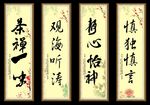 茶禅一味
观海听涛
静心怡神
慎独慎言